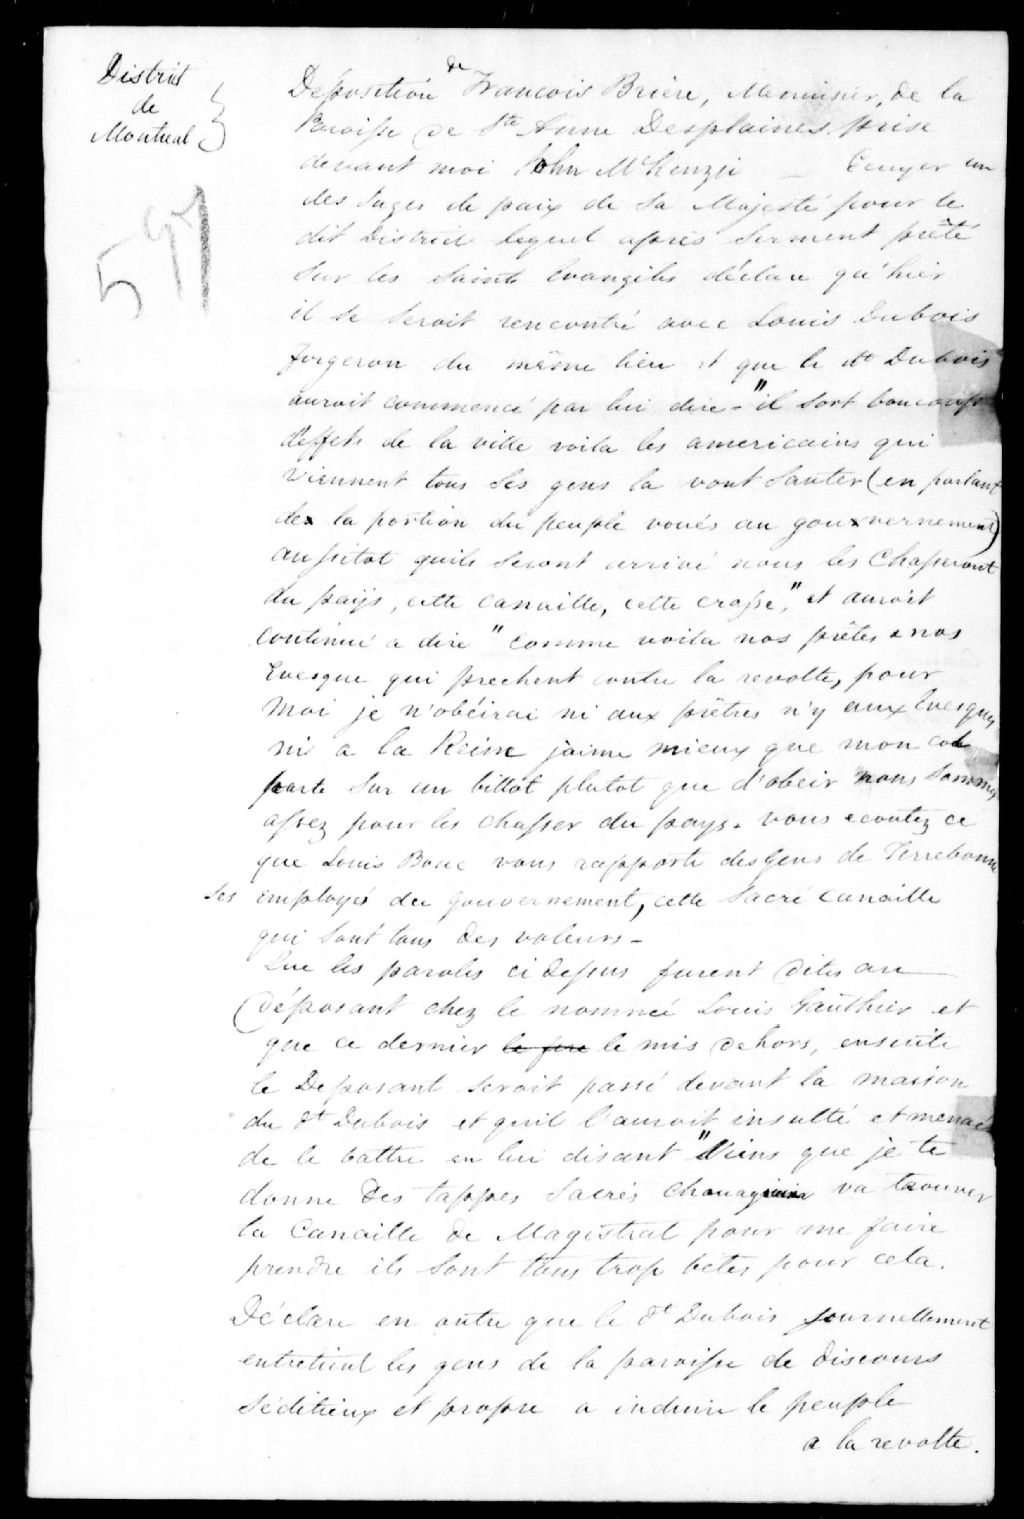 District
de
Montreal
597
Déposition de Francois Briere, Menuisier, de la
Paroisse de Ste Anne Desplaines prise
devant moi John McKenzie Ecuyer un
des Juges de paix de Sa Majesté pour le
dit District lequel après Serment prêté
Sur les Saints Evangiles déclare qu'hier
il se seroit rencontré avec Louis Dubois
forgeron du même lieu et que le dt Dubois
auroit commencé par lui dire - "il sort boucoup
deffets de la ville voila les americains qui
viennent tous ses gens la vont Sauter (en parlant
de la portion du peuple voués au gouvernement)
aussitot quils seront arrivé nous les Chasseront
du païjs, cette canaille, cette crasse," et auroit
continué a dire "comme voila nos prêtes & nos
Evesque qui prechent contre la revolte, pour
moi je n'obéirai ni aux prêtres n'y aux Evesques
ni a la Reine jaime mieux que mon col
parte sur un bittot plutot que d'obeir nous sommes
assez pour les chasser du pays. vous ecoutez ce
que Louis Bouc vous rapporte des gens de Terrebonne
ses employés du gouvernement, cette Sacré canaille
qui sont tous des voleurs -
Que les paroles ci dessus furent dites au
Déposant chez le nommé Louis Gauthier et
que ce dernier le mis dehors, ensuite
le Deposant seroit passé devant la maison
du dt Dubois et quil l'auroit insulté et menacé
de le battre en lui disant "Viens que je te
donne des tappes Sacrés va trouver
la Canaille de Magistrat pour me faire
prendre ils sont tous trop bêtes pour cela.
Déclare en outre que le dt Dubois journellement
entretient les gens de la paroisse de discours
Séditieux et propre a induire le peuple
a la revolte.